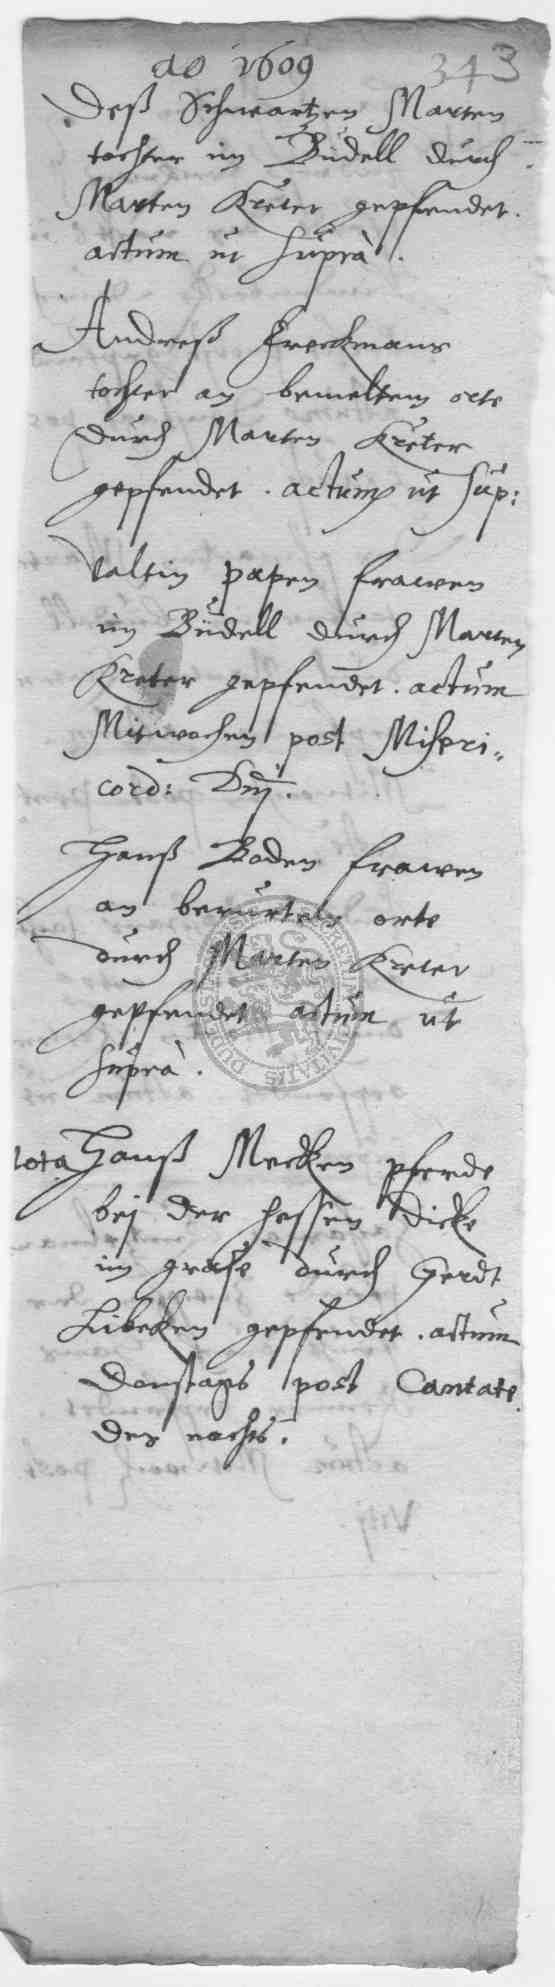 ao 1609 343
Deß Schwartzen Marten
tochter im Büdell durch
Marten Kreter gepfendet.
actum ut suprà.
Andreß Freckmans
tochter an bemeltem orte
durch Marten Kreter
gepfendet. actum ut sup:
Valtin papen frawen
im Büdell durch Marten
Kreter gepfendet. actum
Mitwochen post Miseri„
cord: Dnj.
Hanß Boden frawen
an berurtem orte
durch Marten Kreter
gepfendet actum ut
suprà.
Nota Hanß Mecken pferde
bej der hessen dicke
im grase durch Gerdt
Libeken gepfendet. actum
Donstags post Cantate
des nachts.